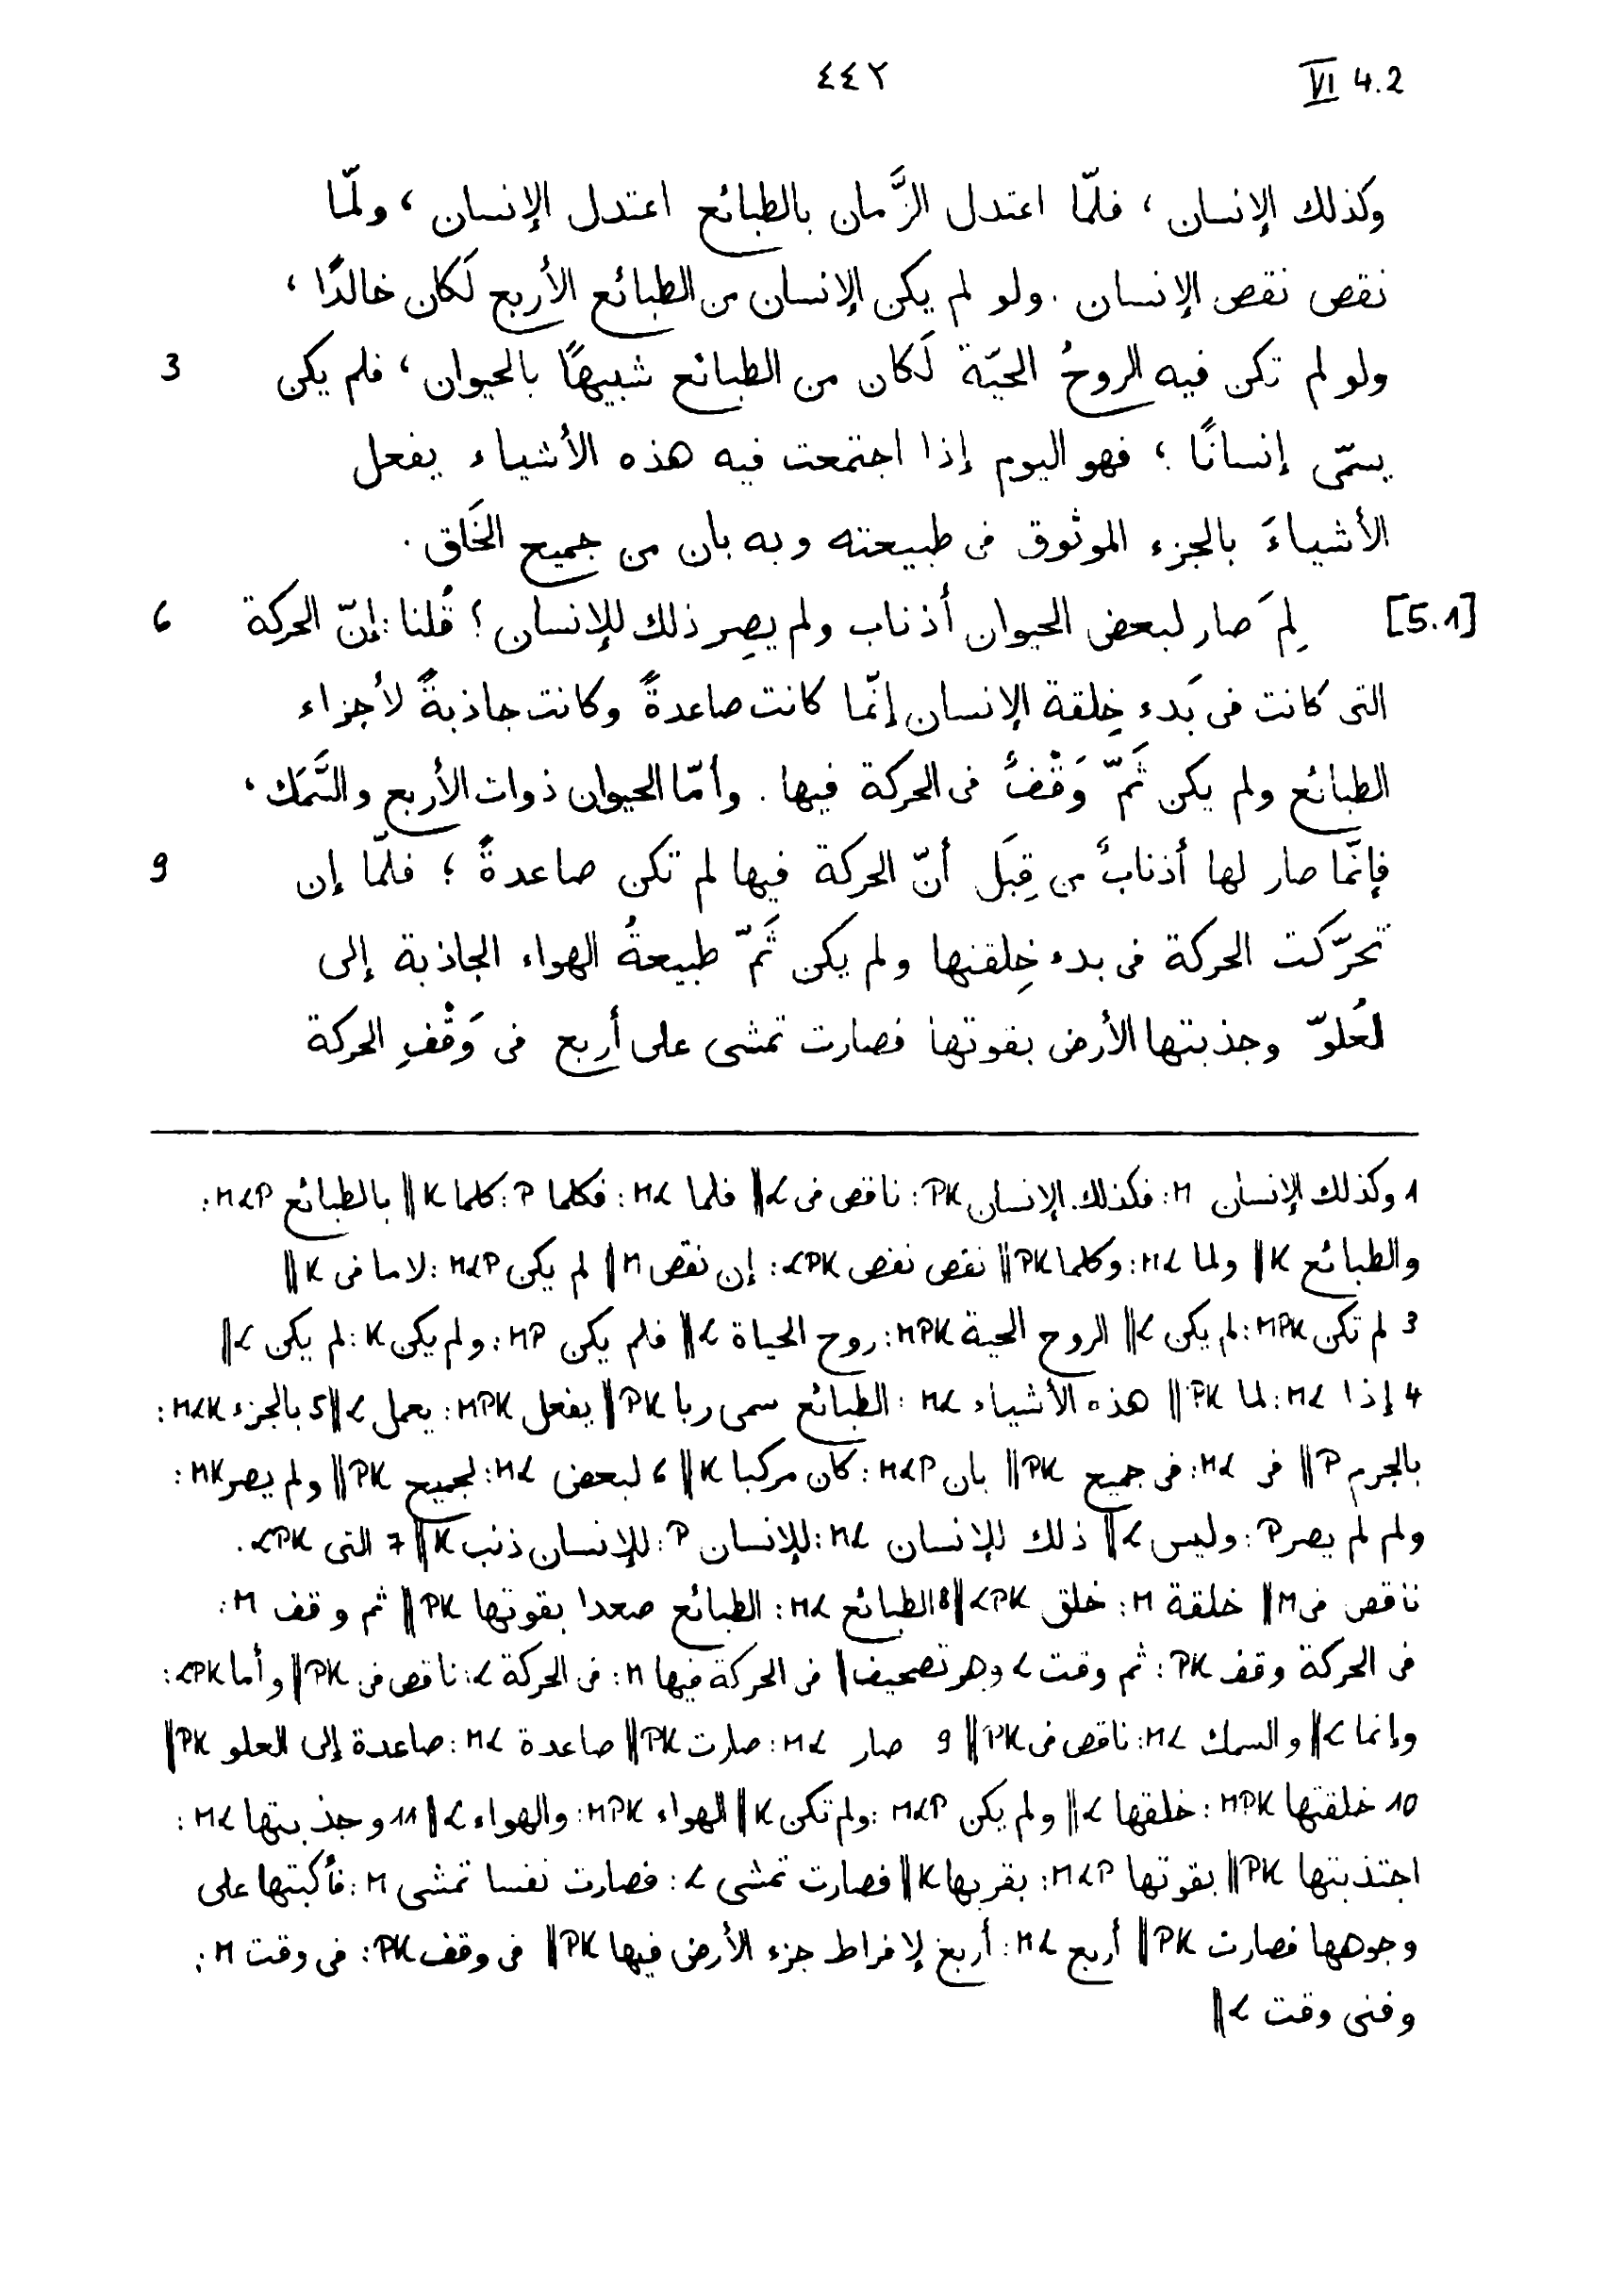 VI 4.2
٤٤٢
وكذلك الإنسان ، فلمّا اعتدل الزَّمان بالطبائع اعتدل الإنسان ، ولمّا
نقص نقص الإنسان . ولو لم يكن الإنسان من الطبائع الأربع لَكان خالدًا ،
3 ولو لم تكن فيه الروحُ الحيّة لَكان من الطبائع شبيهًا بالحيوان ، فلم يكن
يسمّى إنسانًا ؛ فهو اليوم إذا اجتمعت فيه هذه الأشياء يفعل
الأشياءَ بالجزء الموثوق فى طبيعته وبه بان من جميع الخَلق .
6 [5.1] لِمَ صار لبعض الحيوان أذناب ولم يصِر ذلك للإنسان ؟ قُلنا : إنّ الحركة
التى كانت فى بَدء خِلقة الإنسان إنّما كانت صاعدةً وكانت جاذبةً لأجزاء
الطبائع ولم يكن ثَمّ وَقْفٌ فى الحركة فيها . وأمّا الحيوان ذوات الأربع والسَّمَك ،
9 فإنّما صار لها أذنابٌ من قِبَل أنّ الحركة فيها لم تكن صاعدةً ؛ فلمّا إن
تحرّكت الحركة فى بدء خِلقتها ولم يكن ثَمّ طبيعةُ الهواء الجاذبة إلى
العُلوّ وجذبتها الأرض بقوتها فصارت تمشى على أربع فى وَقْفِ الحركة
1 وكذلك الإنسان M : فكذلك الإنسان PK : ناقص فى L || فلما ML : فكلما P : كلما K || بالطبائع MLP :
والطبائع K || ولما ML : وكلما PK || نقص نقص LPK : إن نقص M || لم يكن MLP : لاما فى K ||
3 لم تكن MPK : لم يكن L || الروح الحية MPK : روح الحياة L || فلم يكن MP : ولم يكن K : لم يكن L ||
4 إذا ML : لما PK || هذه الأشياء ML : الطبائع سمى ربا PK || يفعل MPK : يعمل L || 5 بالجزء MLK :
بالجرم P || فى ML : فى جميع PK || بان MLP : كان مركبا K || 6 لبعض ML : لجميع PK || ولم يصر MK :
ولم لم يصر P : وليس L || ذلك للإنسان ML : للإنسان P : للإنسان ذنب K || 7 التى LPK .
ناقص فى M || خلقة M : خلق LPK || 8 الطبائع ML : الطبائع صعدا بقوتها PK || ثم وقف M :
فى الحركة وقف PK : ثم وقت L وهو تصحيف || فى الحركة فيها M : فى الحركة L : ناقص فى PK || وأما LPK :
وإنما L || والسمك ML : ناقص فى PK || 9 صار ML : صارت PK || صاعدة ML : صاعدة إلى العلو PK ||
10 خلقتها MPK : خلقها L || ولم يكن MLP : ولم تكن K || الهواء MPK : والهواء L || 11 وجذبتها ML :
اجتذبتها PK || بقوتها MLP : بقربها K || فصارت تمشى L : فصارت نفسا تمشى M : فأكبتها على
وجوهها فصارت PK || أربع ML : أربع لإفراط جزء الأرض فيها PK || فى وقف PK : فى وقت M :
وفنى وقت L ||